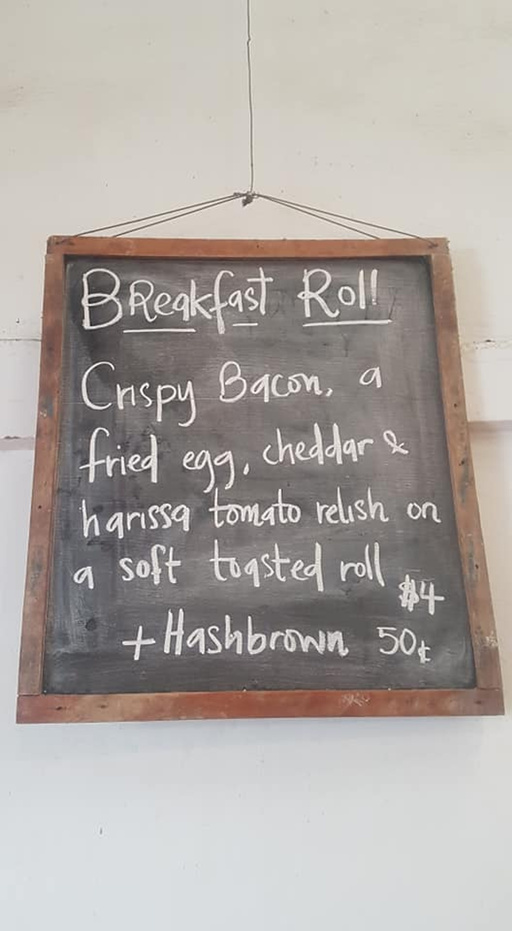 Breakfast Roll
Crispy Bacon, a
fried egg, cheddar &
harissa tomato relish on
a soft toasted roll
$4
+ Hashbrown 50¢